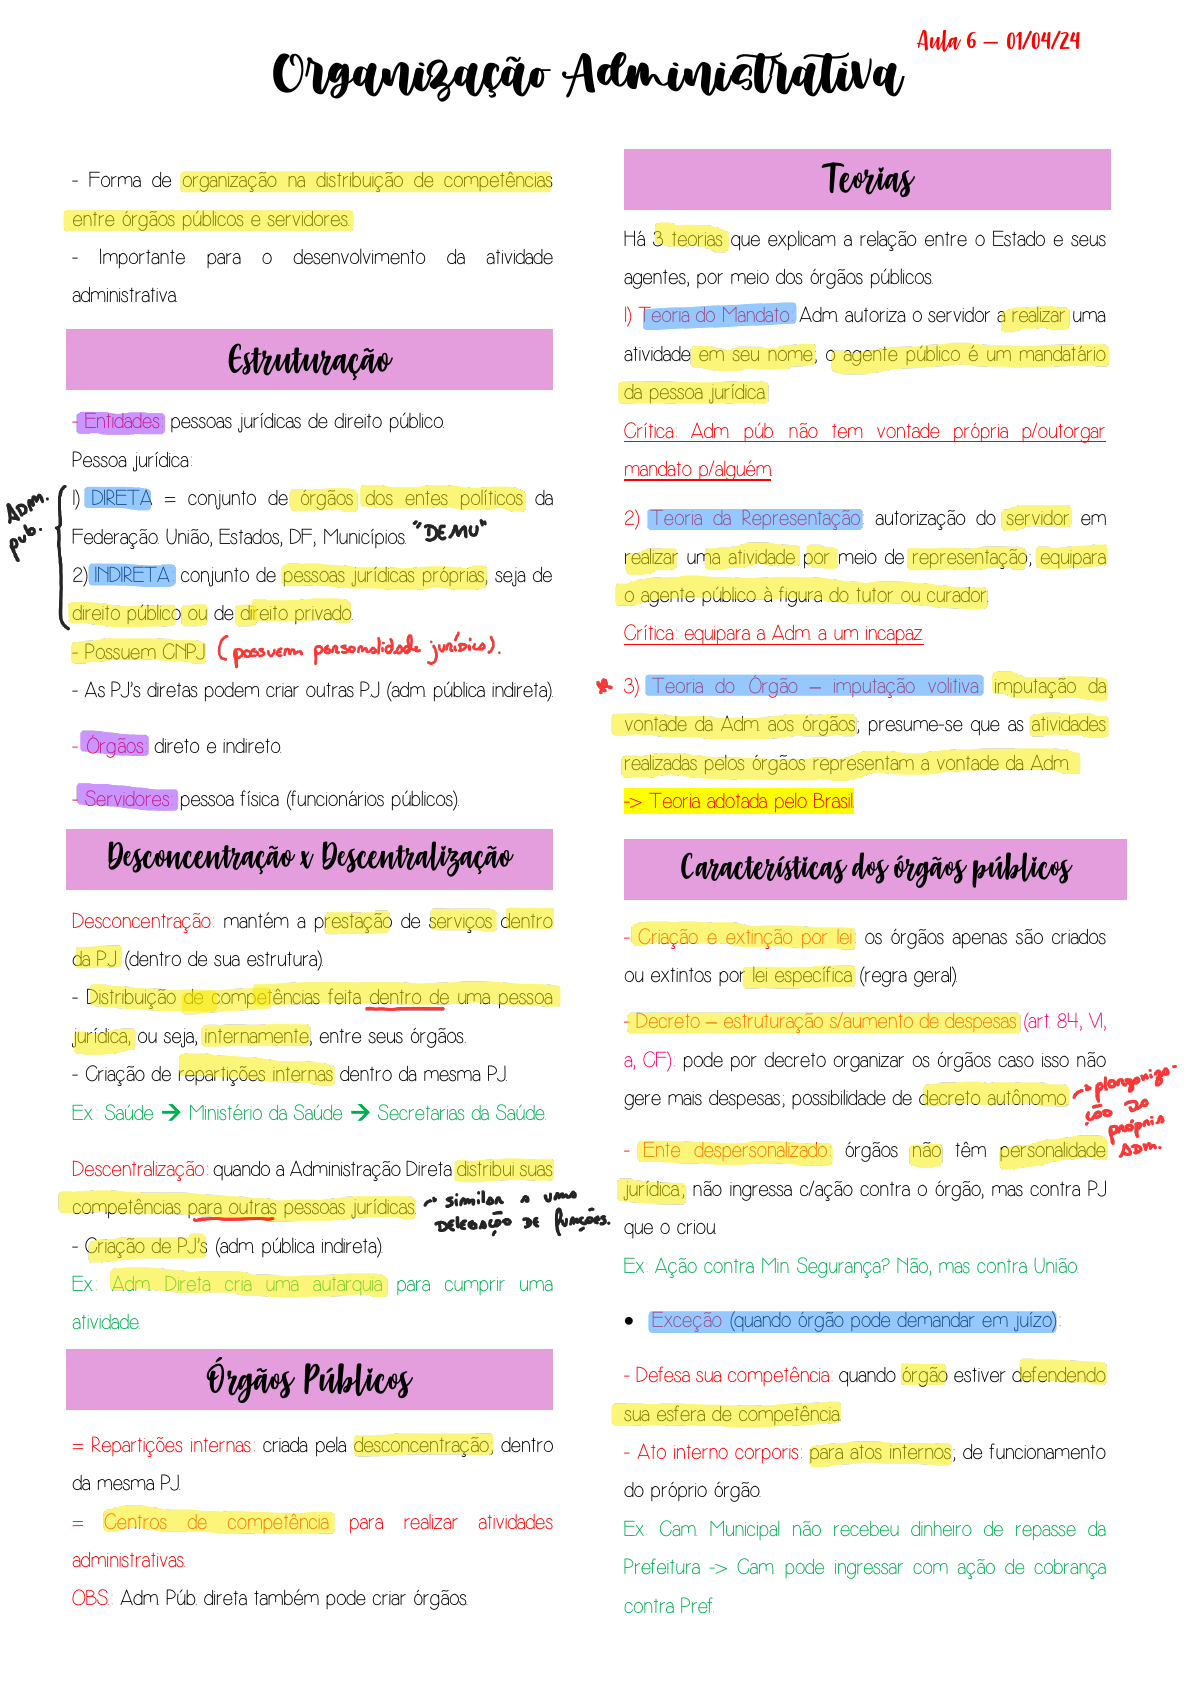 Aula 6 – 01/04/24
Organização Administrativa
- Forma de organização na distribuição de competências
entre órgãos públicos e servidores.
- Importante para o desenvolvimento da atividade
administrativa.
Estruturação
- Entidades: pessoas jurídicas de direito público.
Pessoa jurídica:
Adm. púb.
1) DIRETA = conjunto de órgãos dos entes políticos da
Federação. União, Estados, DF, Municípios. "DEMU"
2) INDIRETA: conjunto de pessoas jurídicas próprias, seja de
direito público ou de direito privado.
- Possuem CNPJ (possuem personalidade jurídica).
- As PJ's diretas podem criar outras PJ (adm. pública indireta).
- Órgãos: direto e indireto.
- Servidores: pessoa física (funcionários públicos).
Desconcentração x Descentralização
Desconcentração: mantém a prestação de serviços dentro
da PJ (dentro de sua estrutura).
- Distribuição de competências feita dentro de uma pessoa
jurídica, ou seja, internamente, entre seus órgãos.
- Criação de repartições internas dentro da mesma PJ.
Ex.: Saúde → Ministério da Saúde → Secretarias da Saúde.
Descentralização: quando a Administração Direta distribui suas
competências para outras pessoas jurídicas. → similar a uma
delegação de funções.
- Criação de PJ's (adm. pública indireta).
Ex.: Adm. Direta cria uma autarquia para cumprir uma
atividade.
Órgãos Públicos
= Repartições internas: criada pela desconcentração, dentro
da mesma PJ.
= Centros de competência para realizar atividades
administrativas.
OBS.: Adm. Púb. direta também pode criar órgãos.
Teorias
Há 3 teorias que explicam a relação entre o Estado e seus
agentes, por meio dos órgãos públicos.
1) Teoria do Mandato: Adm. autoriza o servidor a realizar uma
atividade em seu nome; o agente público é um mandatário
da pessoa jurídica.
Crítica: Adm. púb. não tem vontade própria p/outorgar
mandato p/alguém.
2) Teoria da Representação: autorização do servidor em
realizar uma atividade por meio de representação; equipara
o agente público à figura do tutor ou curador.
Crítica: equipara a Adm. a um incapaz
3) Teoria do Órgão – imputação volitiva: imputação da
vontade da Adm. aos órgãos; presume-se que as atividades
realizadas pelos órgãos representam a vontade da Adm.
-> Teoria adotada pelo Brasil.
Características dos órgãos públicos
- Criação e extinção por lei: os órgãos apenas são criados
ou extintos por lei específica (regra geral).
- Decreto – estruturação s/aumento de despesas (art. 84, VI,
a, CF): pode por decreto organizar os órgãos caso isso não
gere mais despesas; possibilidade de decreto autônomo. → p/organiza-
ção da
própria
Adm.
- Ente despersonalizado: órgãos não têm personalidade
jurídica; não ingressa c/ação contra o órgão, mas contra PJ
que o criou.
Ex.: Ação contra Min. Segurança? Não, mas contra União.
• Exceção (quando órgão pode demandar em juízo):
- Defesa sua competência: quando órgão estiver defendendo
sua esfera de competência.
- Ato interno corporis: para atos internos, de funcionamento
do próprio órgão.
Ex.: Cam. Municipal não recebeu dinheiro de repasse da
Prefeitura -> Cam. pode ingressar com ação de cobrança
contra Pref.